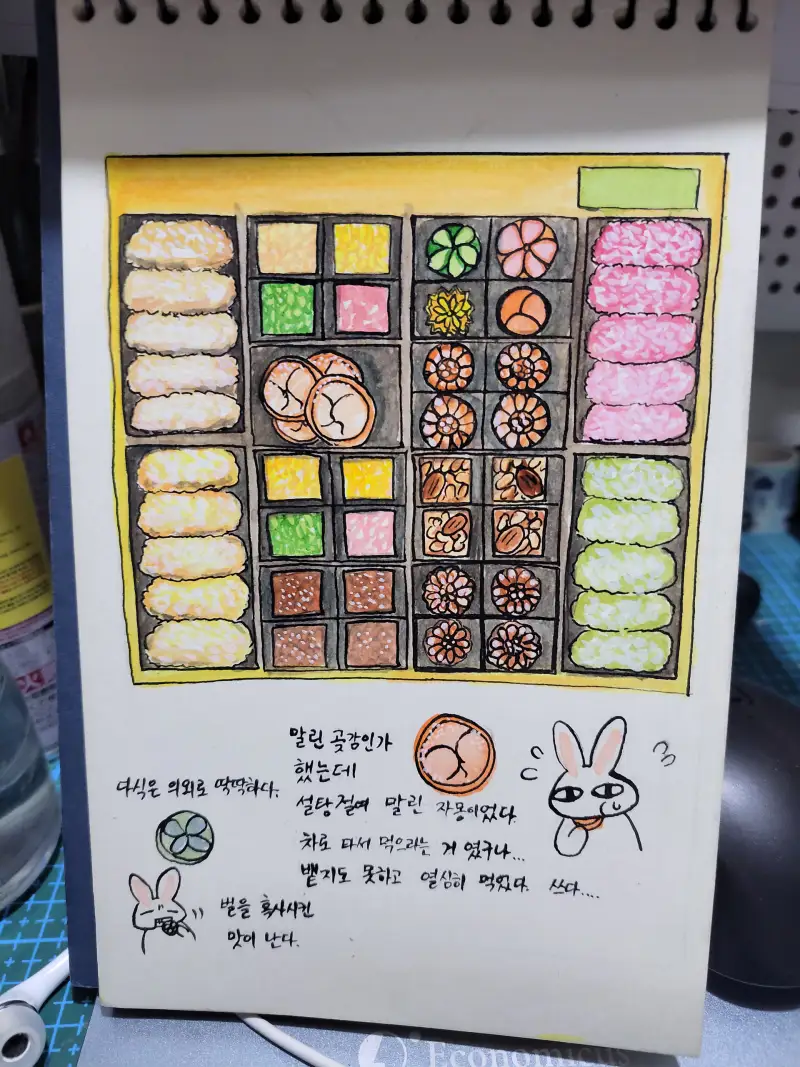 다식은 의외로 딱딱하다.
말린 곶감인가
했는데
설탕절여 말린 자몽이었다.
차로 타서 먹으라는 거 였구나...
뱉지도 못하고 열심히 먹었다. 쓰다....
벌을 혹사시킨
맛이 난다.
Economicus